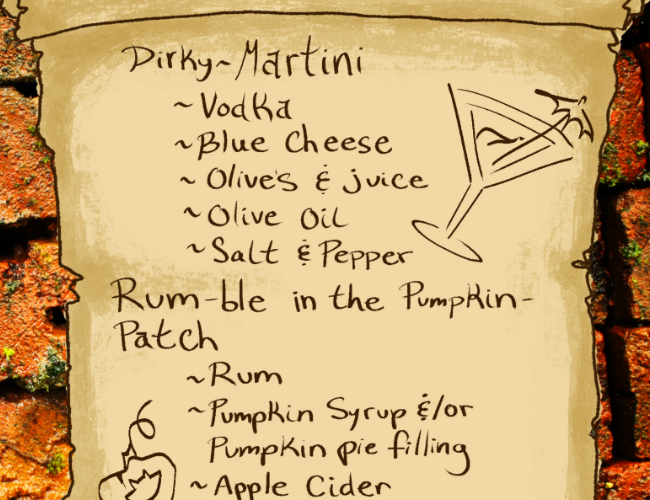 Dirky~Martini
~Vodka
~Blue Cheese
~Olive's & juice
~Olive Oil
~Salt & Pepper
Rum-ble in the Pumpkin-
Patch
~Rum
~Pumpkin Syrup &/or
Pumpkin pie filling
~Apple Cider